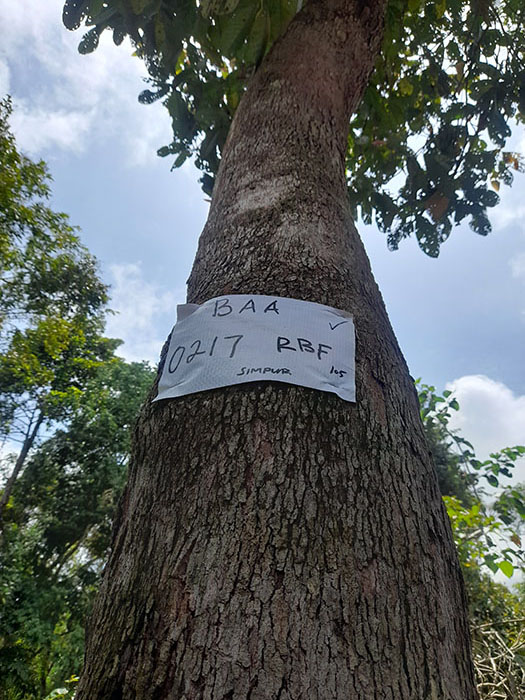 BAA ✓
0217 RBF
SIMPUR 105